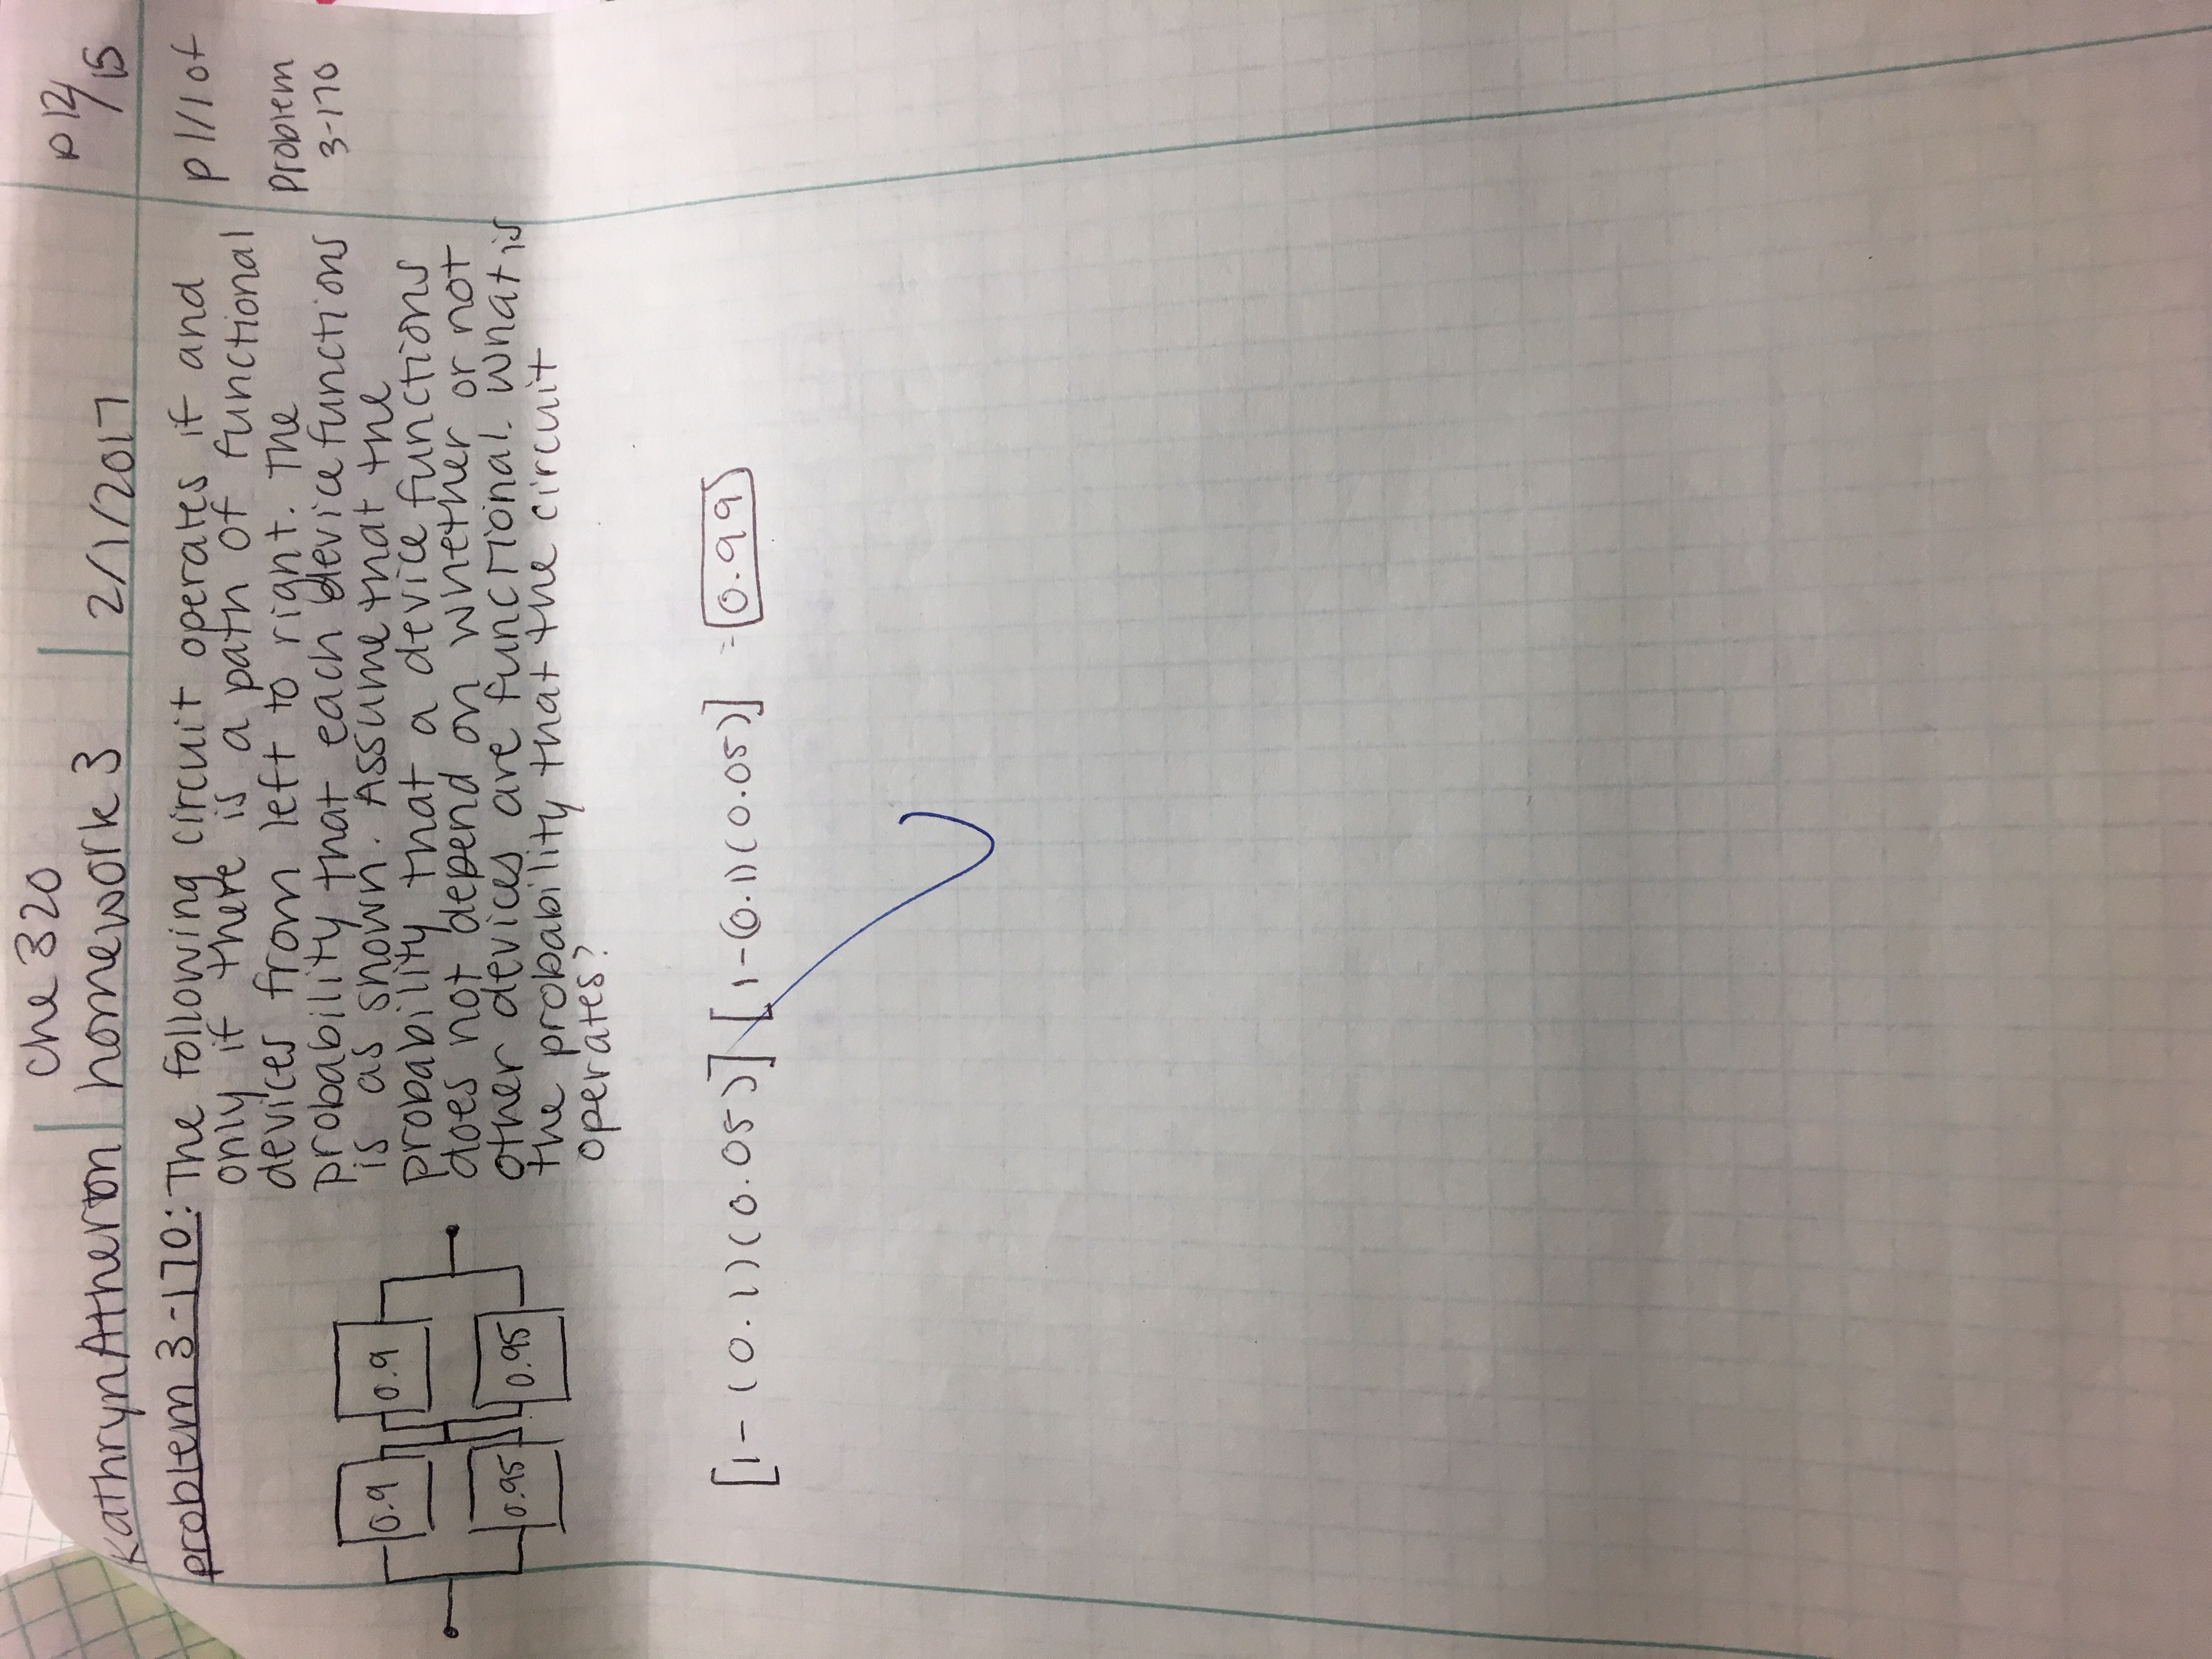 che 320
Kathryn Atherton homework 3 2/1/2017 p 12/15
problem 3-170: The following circuit operates if and
only if there is a path of functional
devices from left to right. The
probability that each device functions
is as shown. Assume that the
probability that a device functions
does not depend on whether or not
other devices are functional. What is
the probability that the circuit
operates?
p 1/1 of
problem
3-170
0.9 0.9
0.95 0.95
[1-(0.1)(0.05)] [1-(0.1)(0.05)] = 0.99